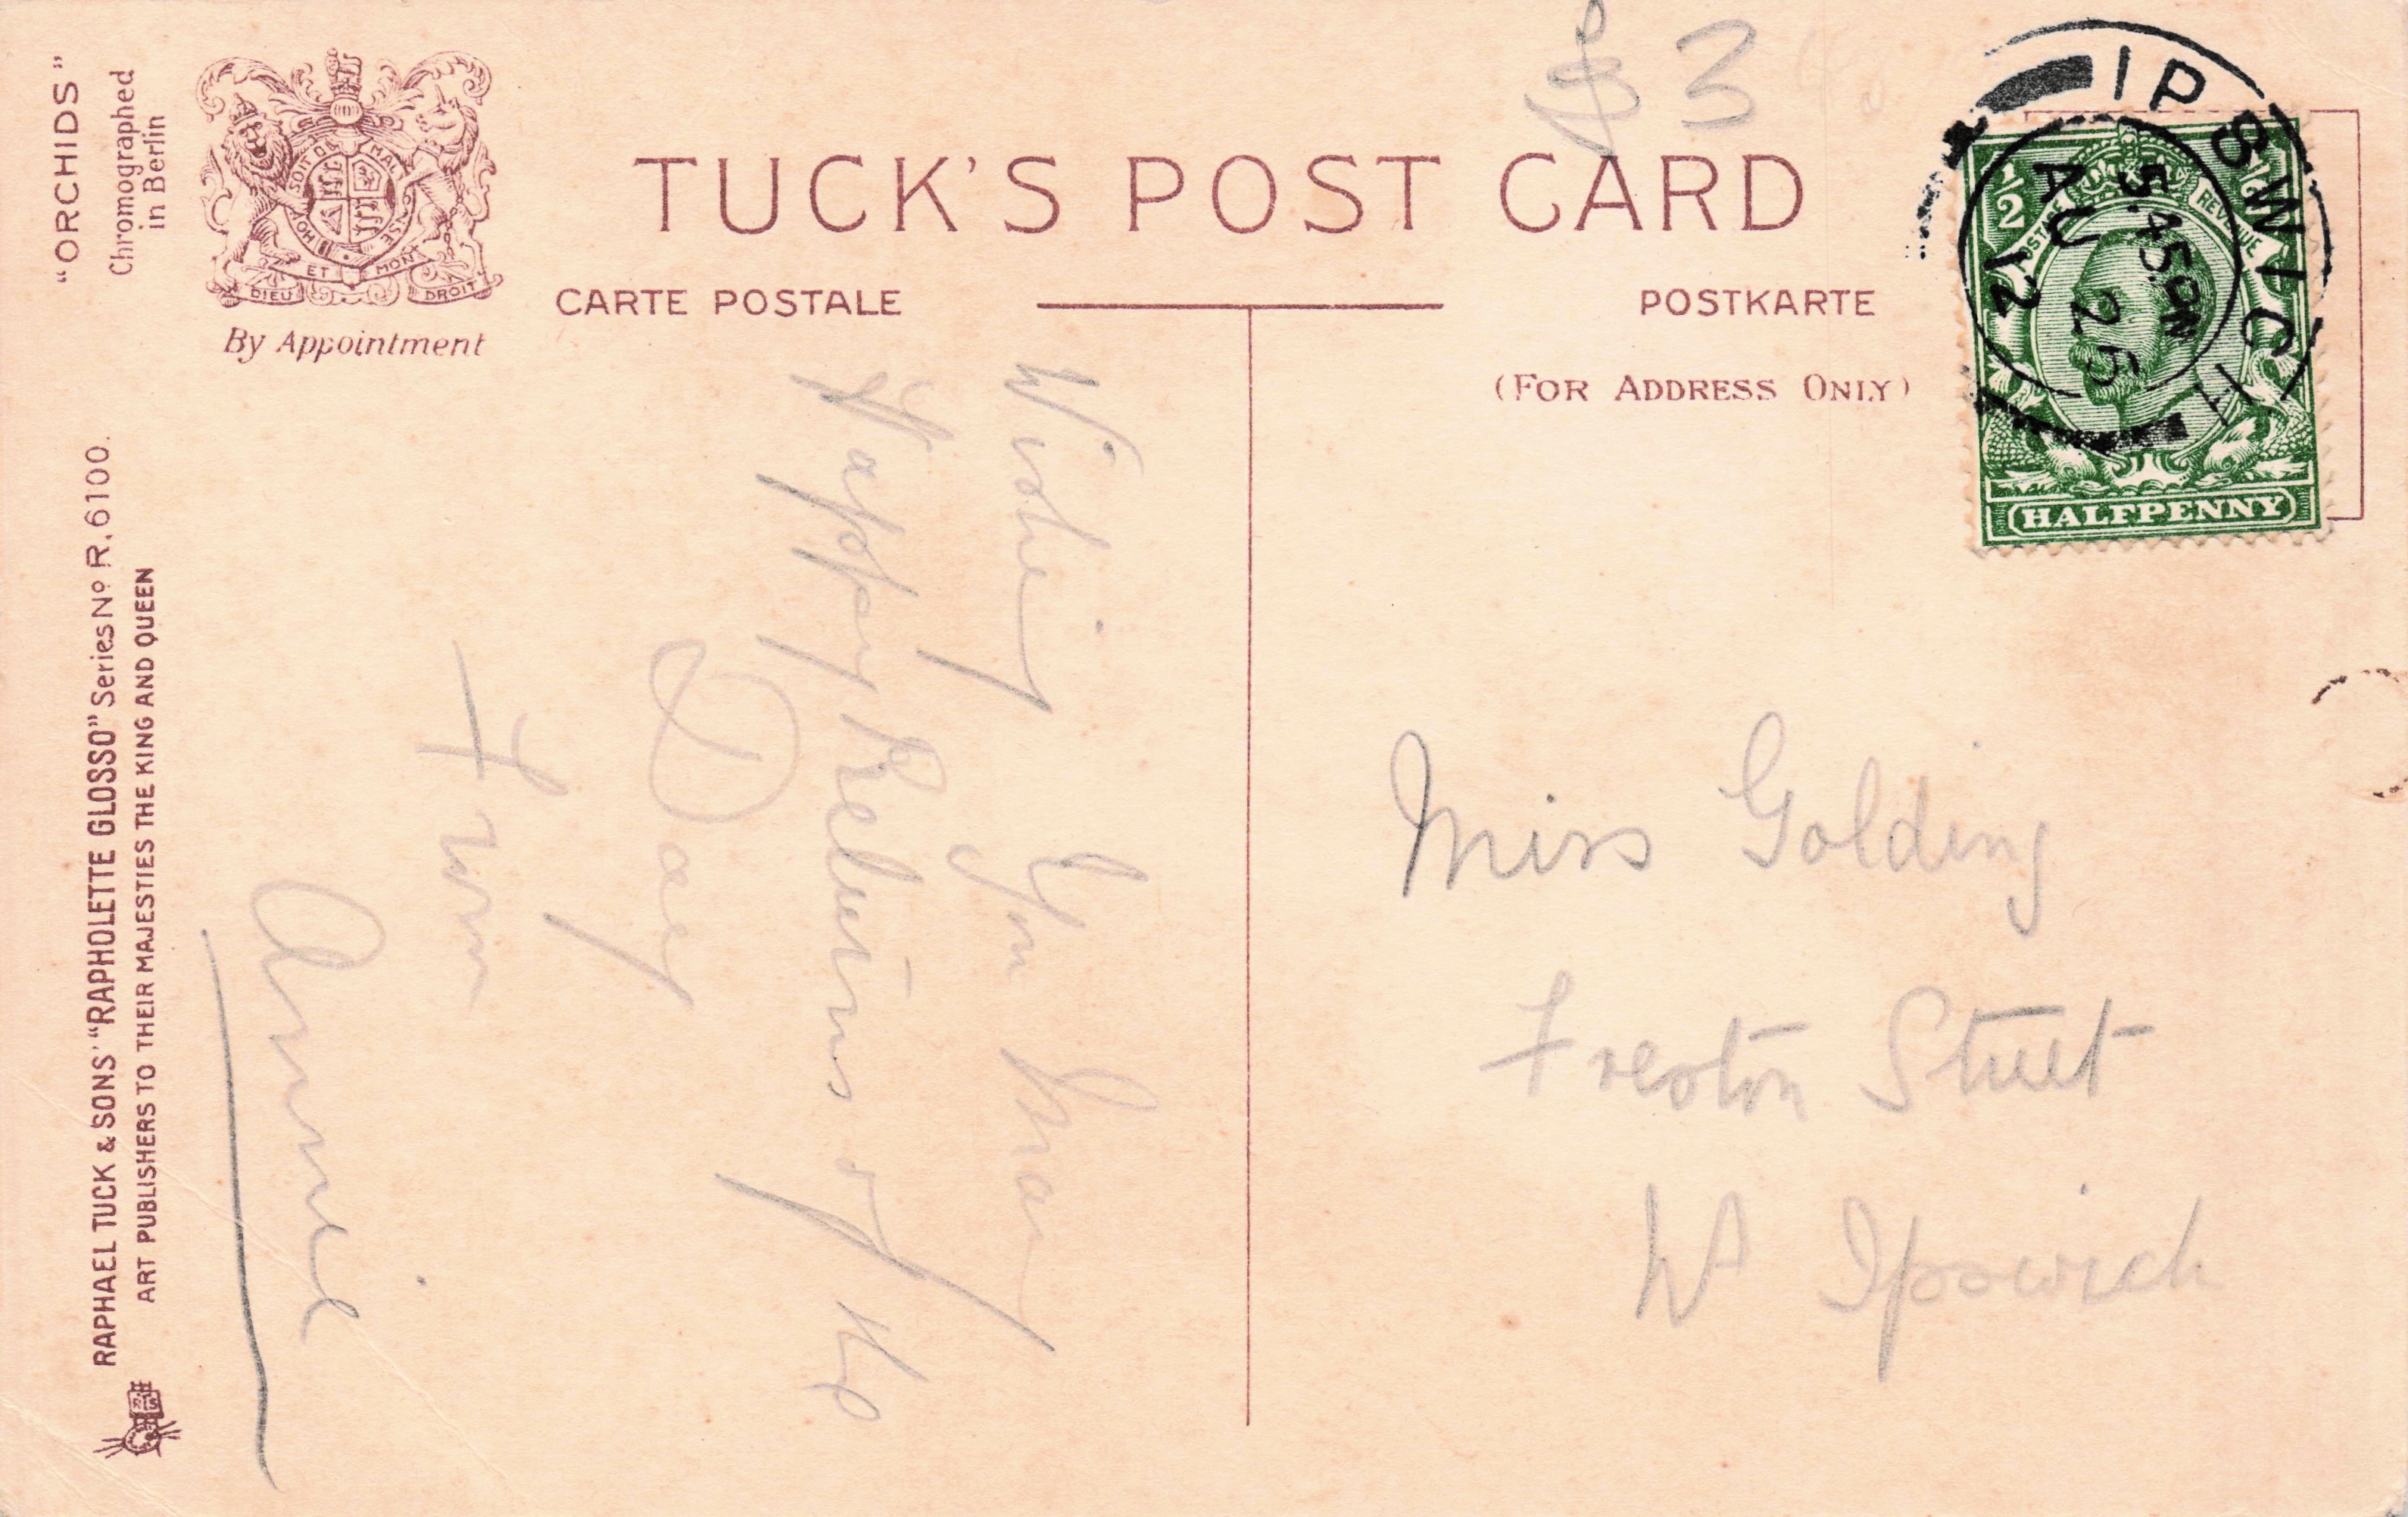 "ORCHIDS"
Chromographed
in Berlin
HONI SOIT QUI MAL Y PENSE
DIEU ET MON DROIT
By Appointment
TUCK'S POST CARD
CARTE POSTALE
POSTKARTE
(FOR ADDRESS ONLY)
£3
IPSWICH
5.45 PM
AU 26
12
1/2
POSTAGE
REVENUE
HALFPENNY
RAPHAEL TUCK & SONS' "RAPHOLETTE GLOSSO" Series No R. 6100.
ART PUBLISHERS TO THEIR MAJESTIES THE KING AND QUEEN
Wishing You Many
Happy Returns of the
Day
From
Annie
Miss Golding
Freston Street
Ipswich